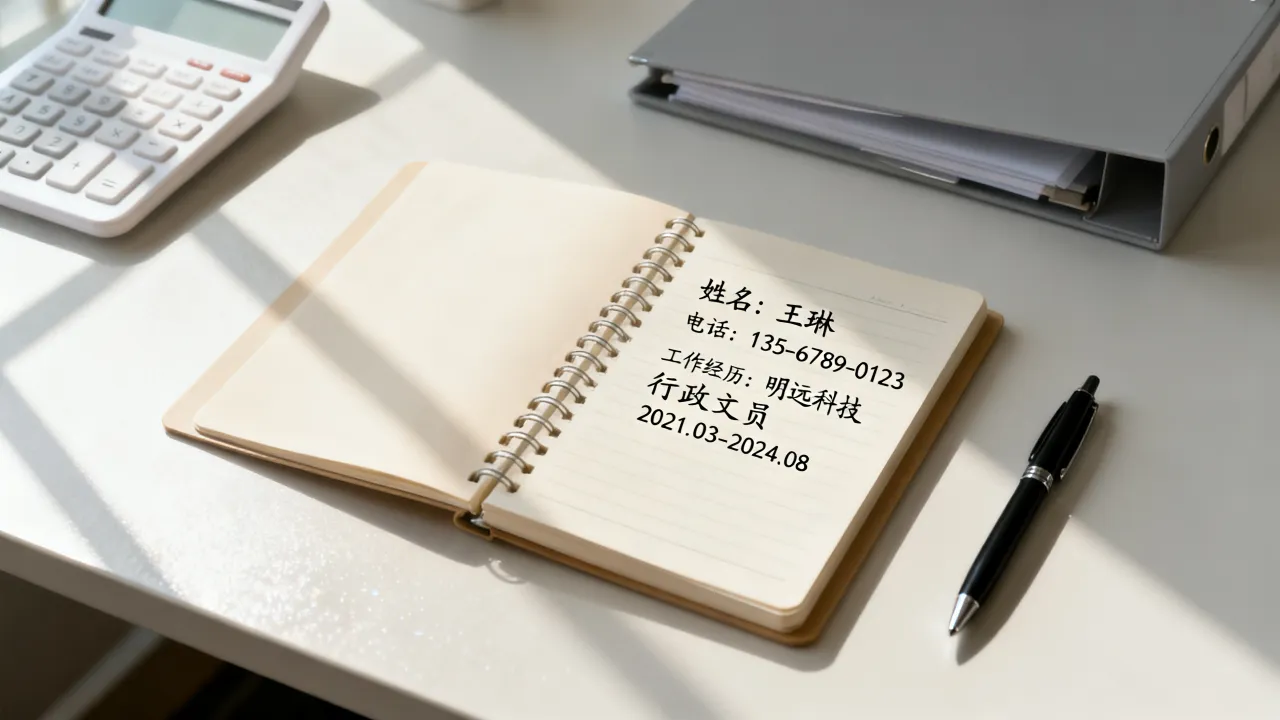 姓名：王琳
电话：135-6789-0123
工作经历：明远科技
行政文员
2021.03-2024.08